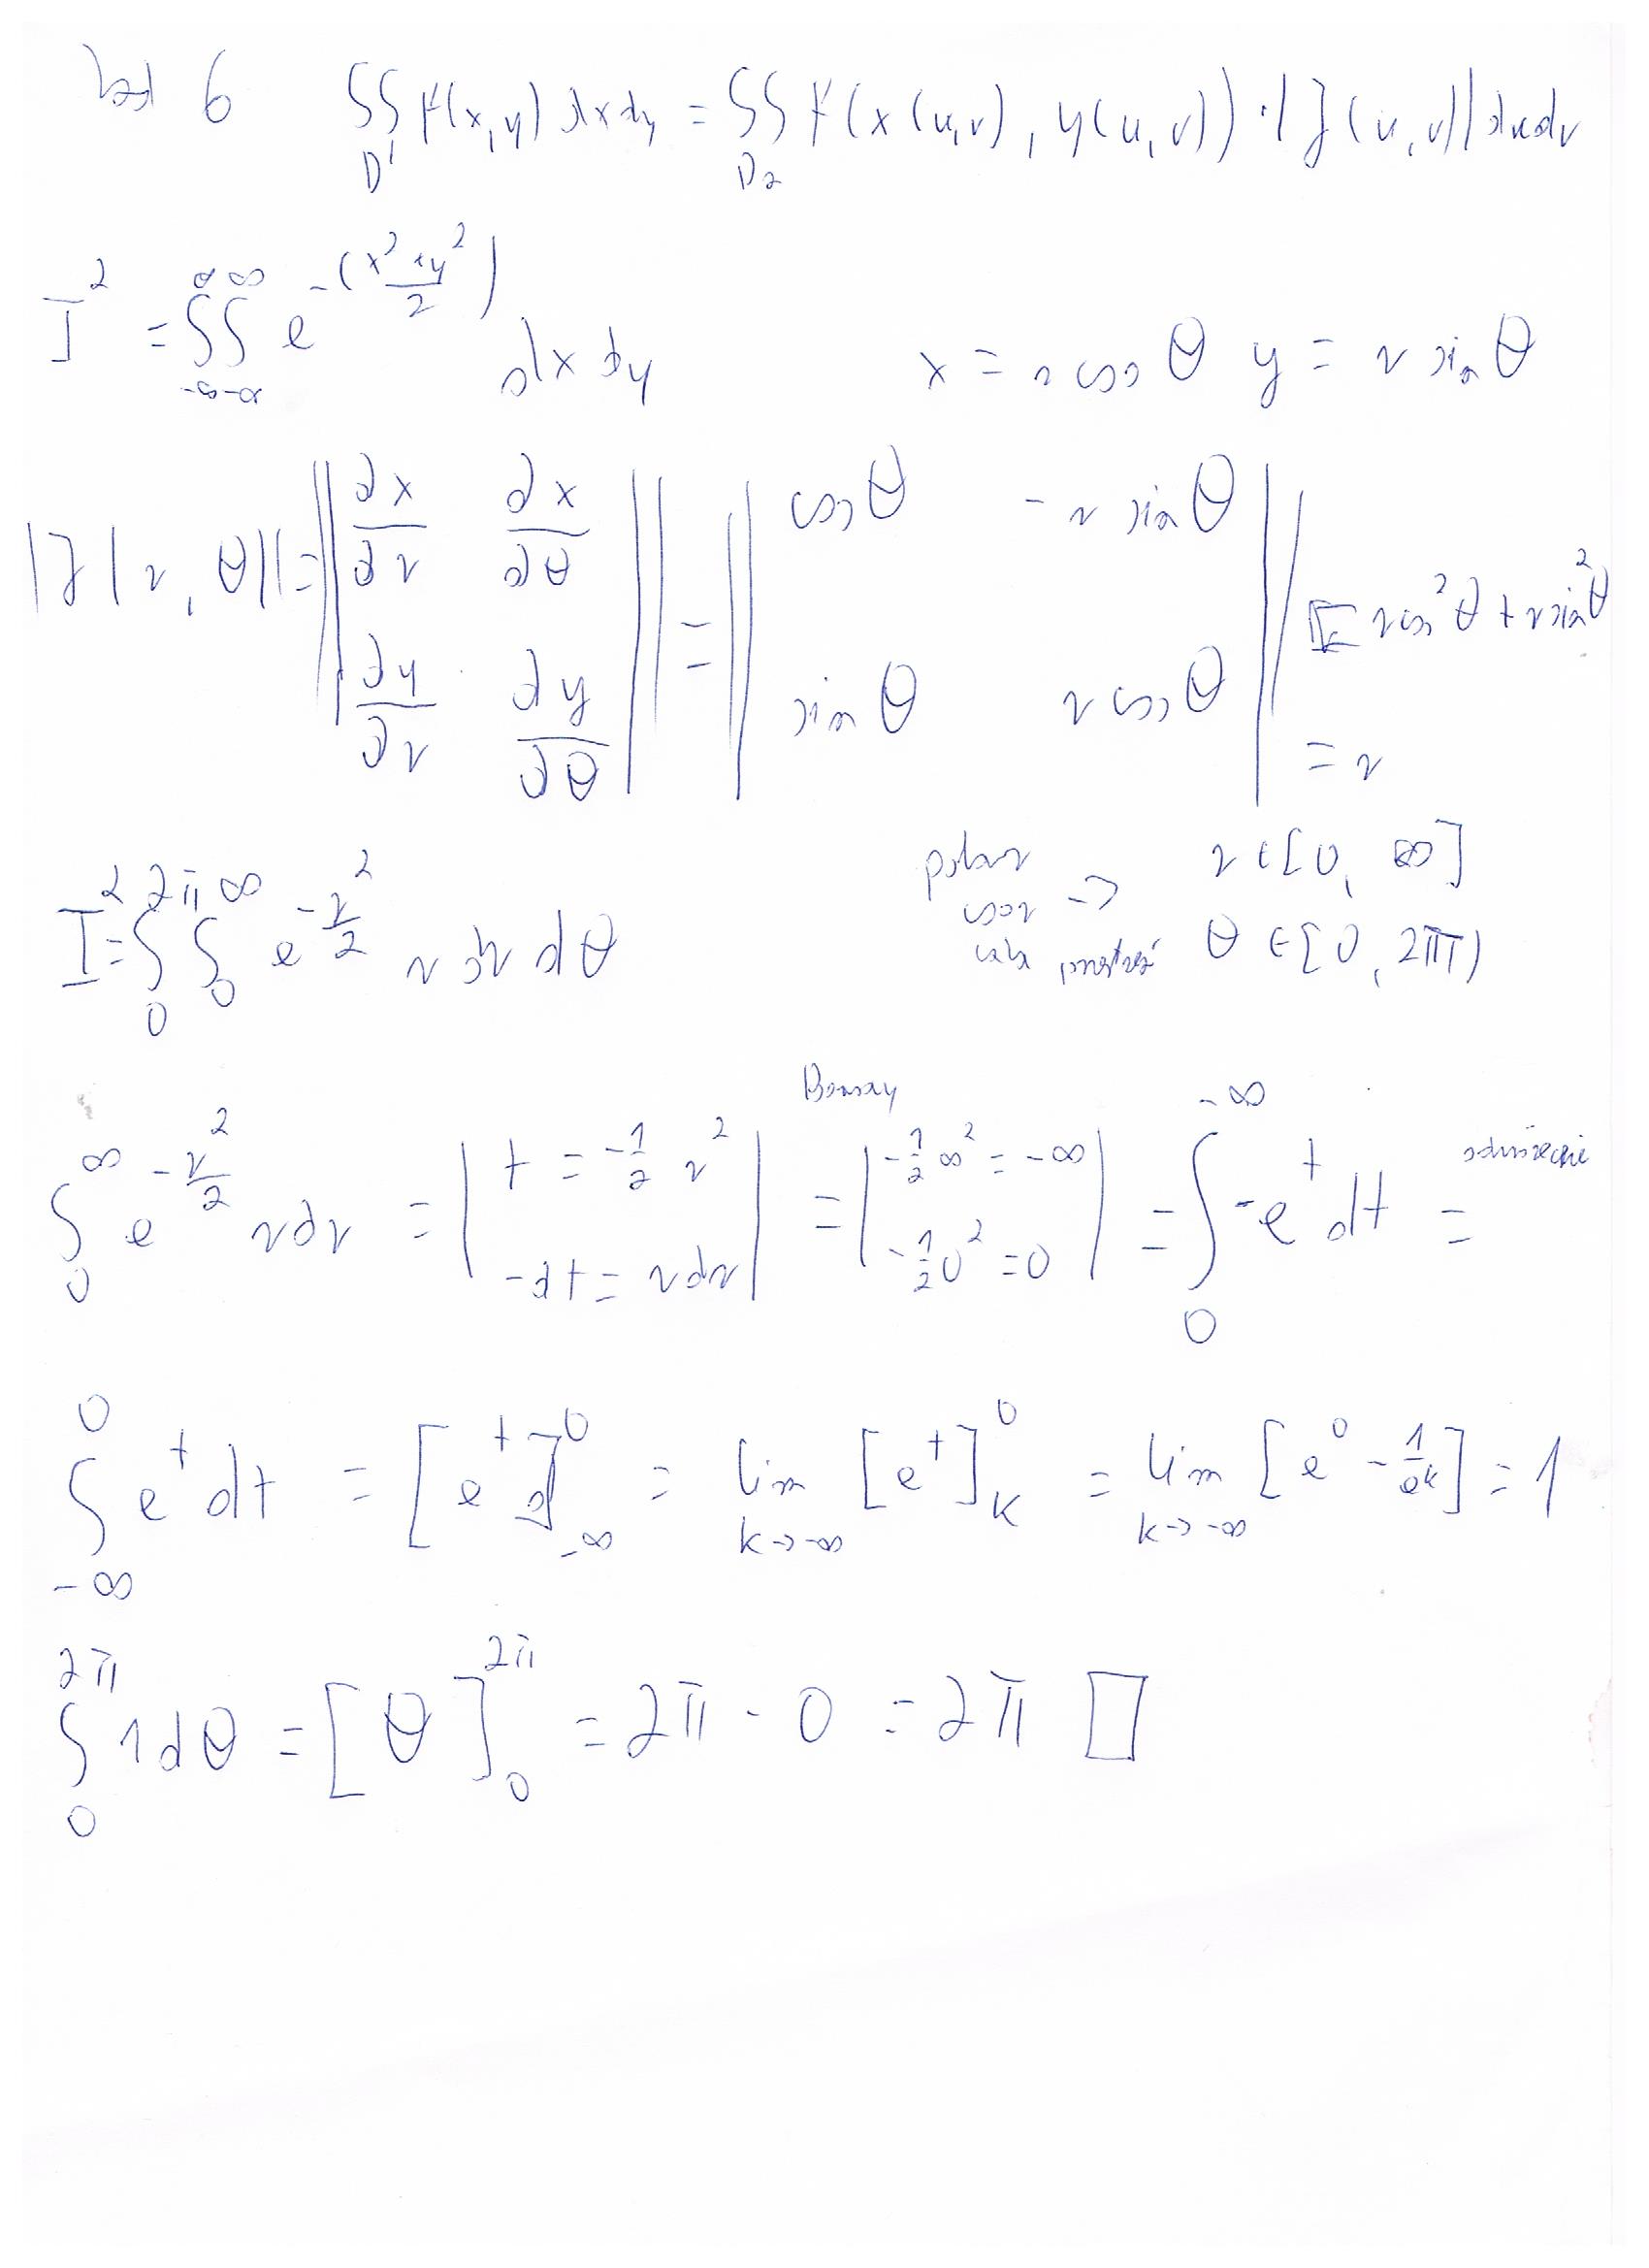 Zad 6 ∬_{D'} f(x,y) dxdy = ∬_{D₂} f(x(u,v), y(u,v)) · |J(u,v)| dudv
I² = ∫_{-∞}^{∞} ∫_{-∞}^{∞} e^{-(x²+y²)/2} dx dy x = r cos θ y = r sin θ
|J(r, θ)| = || ∂x/∂r ∂x/∂θ ; ∂y/∂r ∂y/∂θ || = || cos θ -r sin θ ; sin θ r cos θ || = r cos²θ + r sin²θ
= r
I² = ∫_0^{2π} ∫_0^{∞} e^{-r²/2} r dr dθ polar coor cała przestrzeń => r ∈ [0, ∞] θ ∈ [0, 2π)
∫_0^{∞} e^{-r²/2} r dr = | t = -1/2 r² ; -dt = r dr | = | -1/2 ∞² = -∞ ; -1/2 0² = 0 | = ∫_0^{-∞} -e^t dt = odwrócenie
∫_{-∞}^0 e^t dt = [e^t]_{-∞}^0 = lim_{k→-∞} [e^t]_k^0 = lim_{k→-∞} [e^0 - 1/e^k] = 1
∫_0^{2π} 1 dθ = [θ]_0^{2π} = 2π - 0 = 2π □